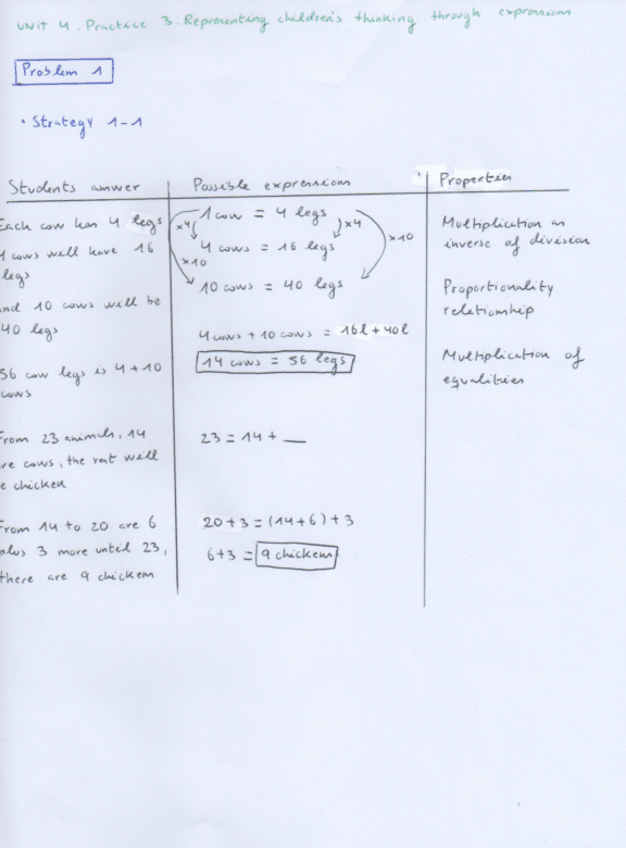 UNIT 4. Practice 3: Representing children's thinking through expressions
Problem 1
• Strategy 1-1
Students answer | Possible expressions | Properties
Each cow has 4 legs
4 cows will have 16
legs
and 10 cows will be
40 legs
56 cow legs is 4+10
cows
From 23 animals, 14
are cows, the rest will
be chicken
From 14 to 20 are 6
plus 3 more until 23,
there are 9 chickens
1 cow = 4 legs
×4 ×4
4 cows = 16 legs
×10 ×10
10 cows = 40 legs
4 cows + 10 cows = 16l + 40l
14 cows = 56 legs
23 = 14 + __
20+3 = (14+6)+3
6+3 = 9 chickens
Multiplication as
inverse of division
Proportionality
relationship
Multiplication of
equalities